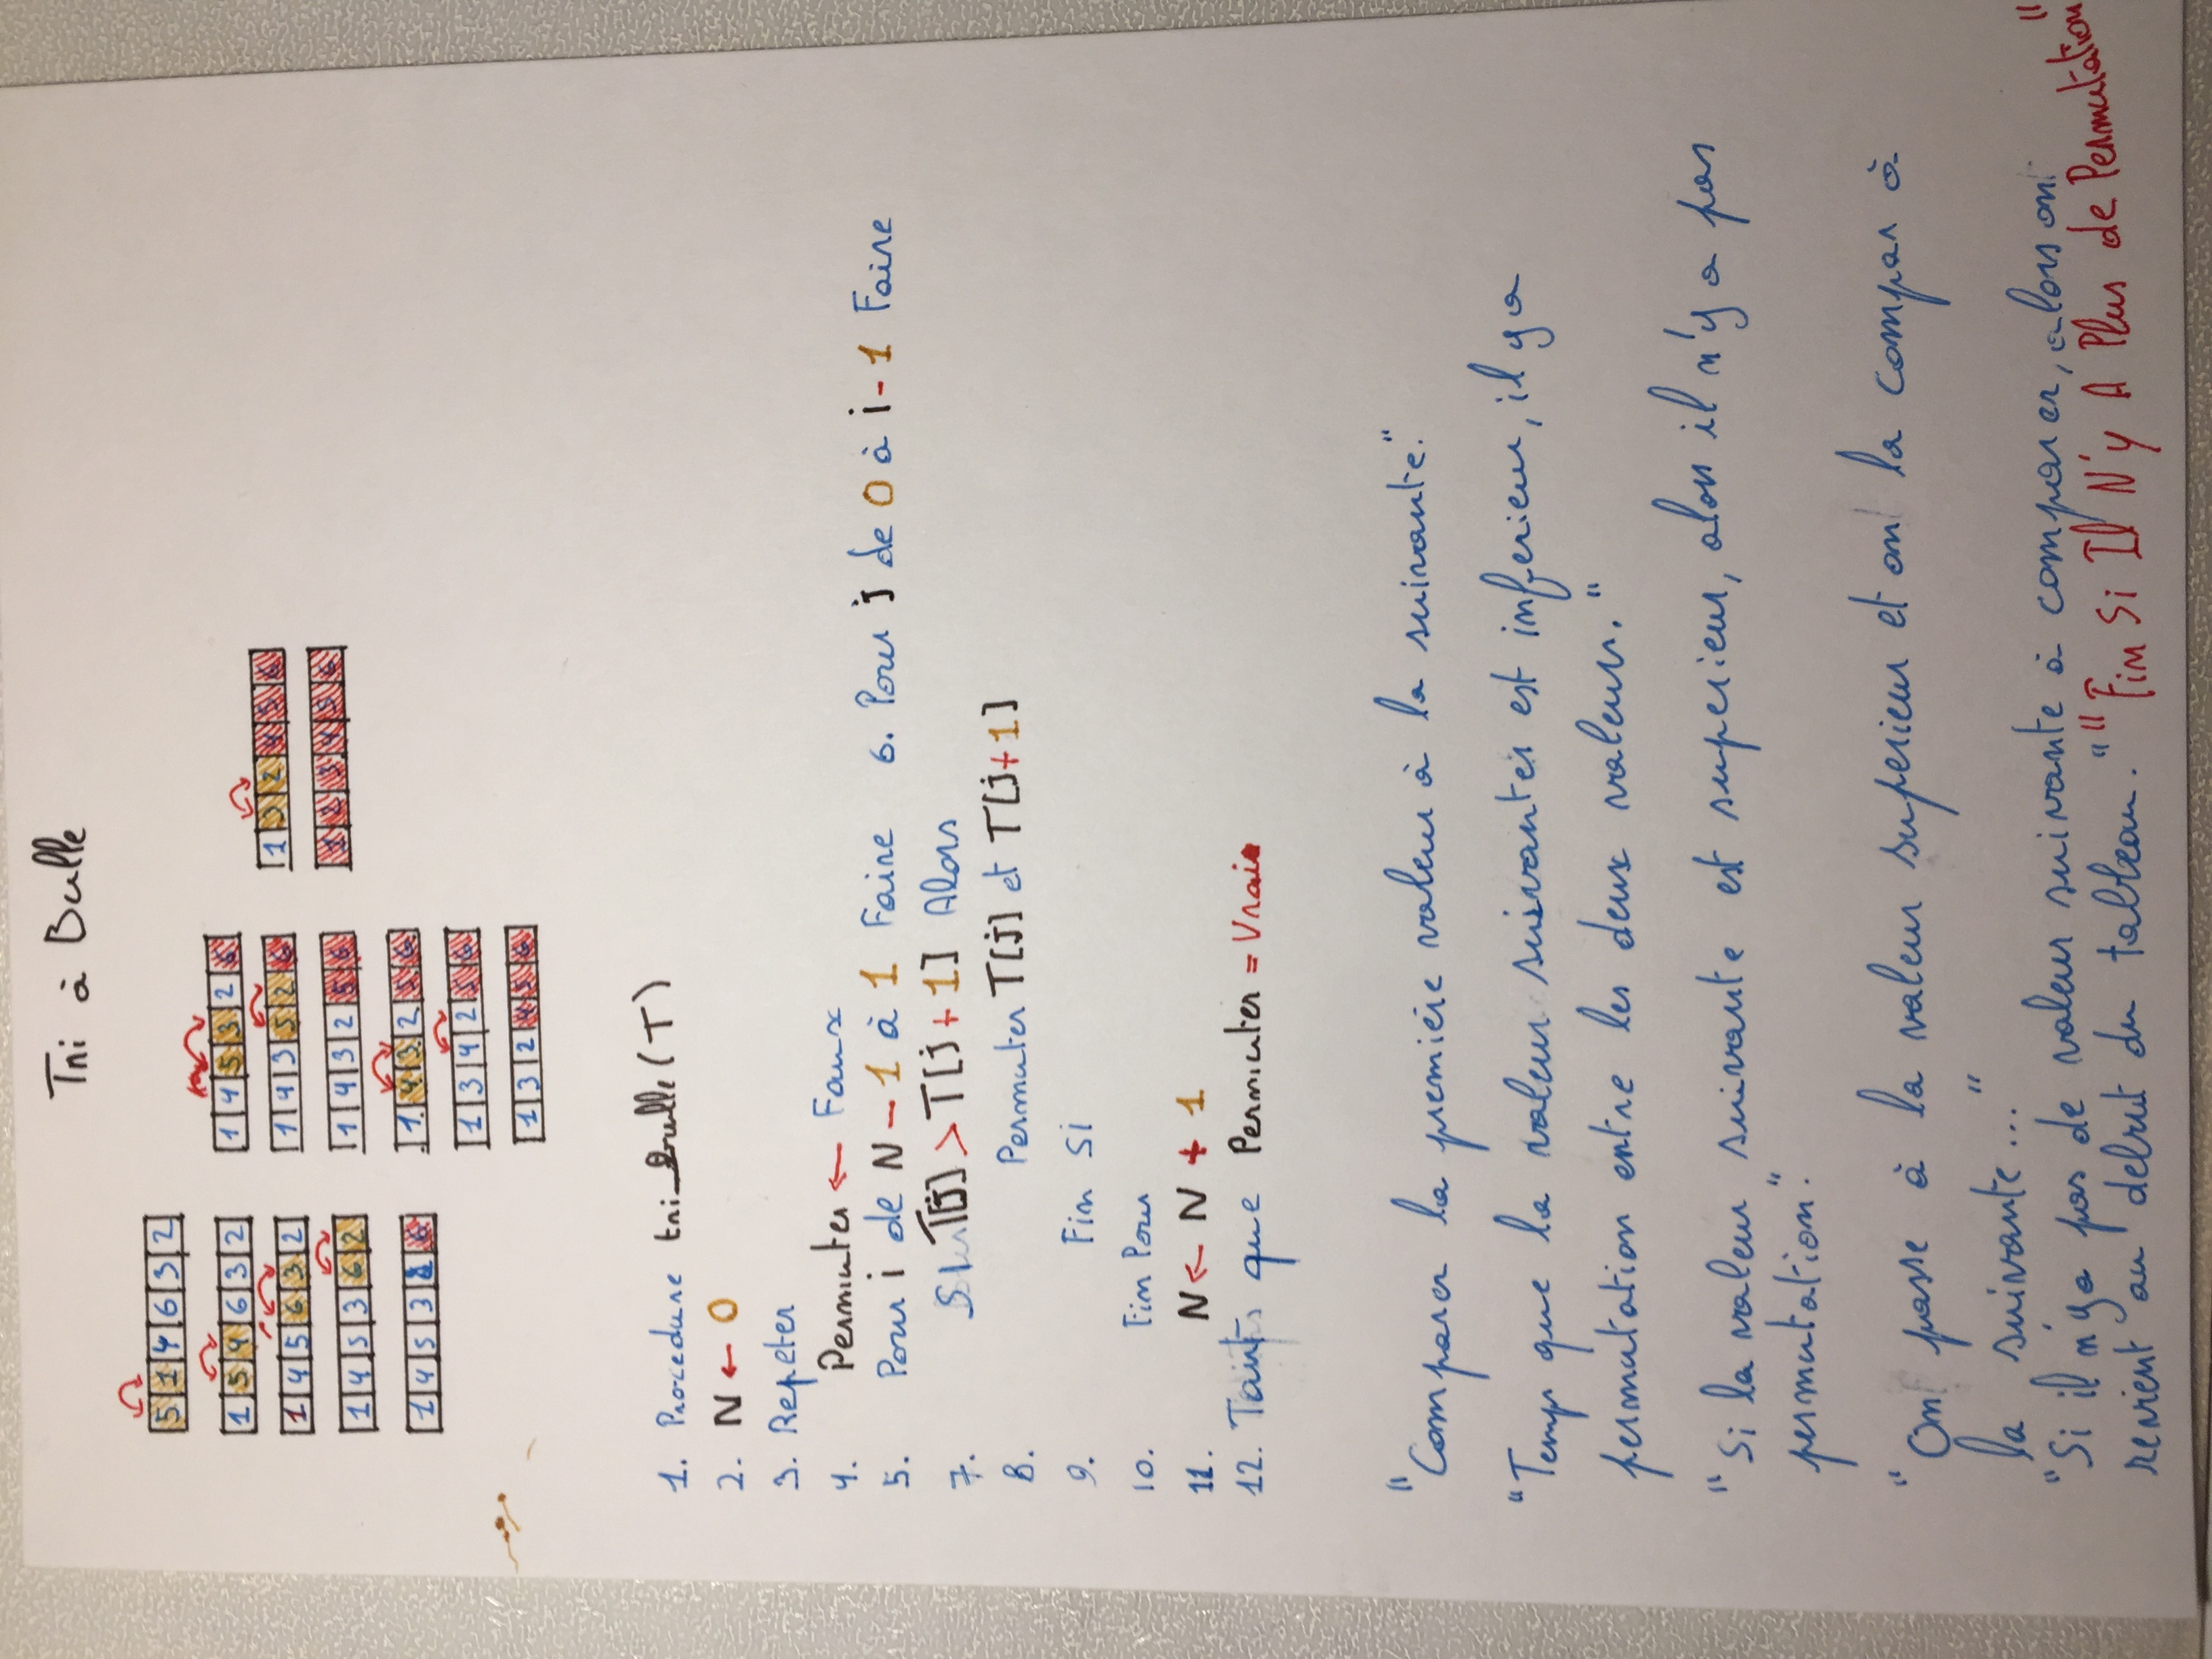 Tri à Bulle
5 1 4 6 3 2
1 5 4 6 3 2
1 4 5 6 3 2
1 4 5 3 6 2
1 4 5 3 2 6
1 4 5 3 2 6
1 4 3 5 2 6
1 4 3 2 5 6
1 4 3 2 5 6
1 3 4 2 5 6
1 3 2 4 5 6
1 3 2 4 5 6
1 2 3 4 5 6
1. Procedure tri_Bulle (T)
2. N ← 0
3. Repeter
4. Permuter ← Faux
5. Pour i de N - 1 à 1 Faire 6. Pour j de 0 à i - 1 Faire
7. Si T[j] > T[j + 1] Alors
8. Permuter T[j] et T[j+1]
9. Fin Si
10. Fin Pour
11. N ← N + 1
12. Tant que Permuter = Vrai
"Comparer la première valeur à la suivante."
"Temps que la valeur suivantes est inferieur, il y a
permutation entre les deux valeurs."
"Si la valeur suivante est superieur, alors il n'y a pas
permutation."
"On passe à la valeur superieur et on la compar à
la suivante..."
"Si il n'y a pas de valeur suivante à comparer, alors on
revient au debut du tableau." "Fin Si Il N'y A Plus de Permutation"